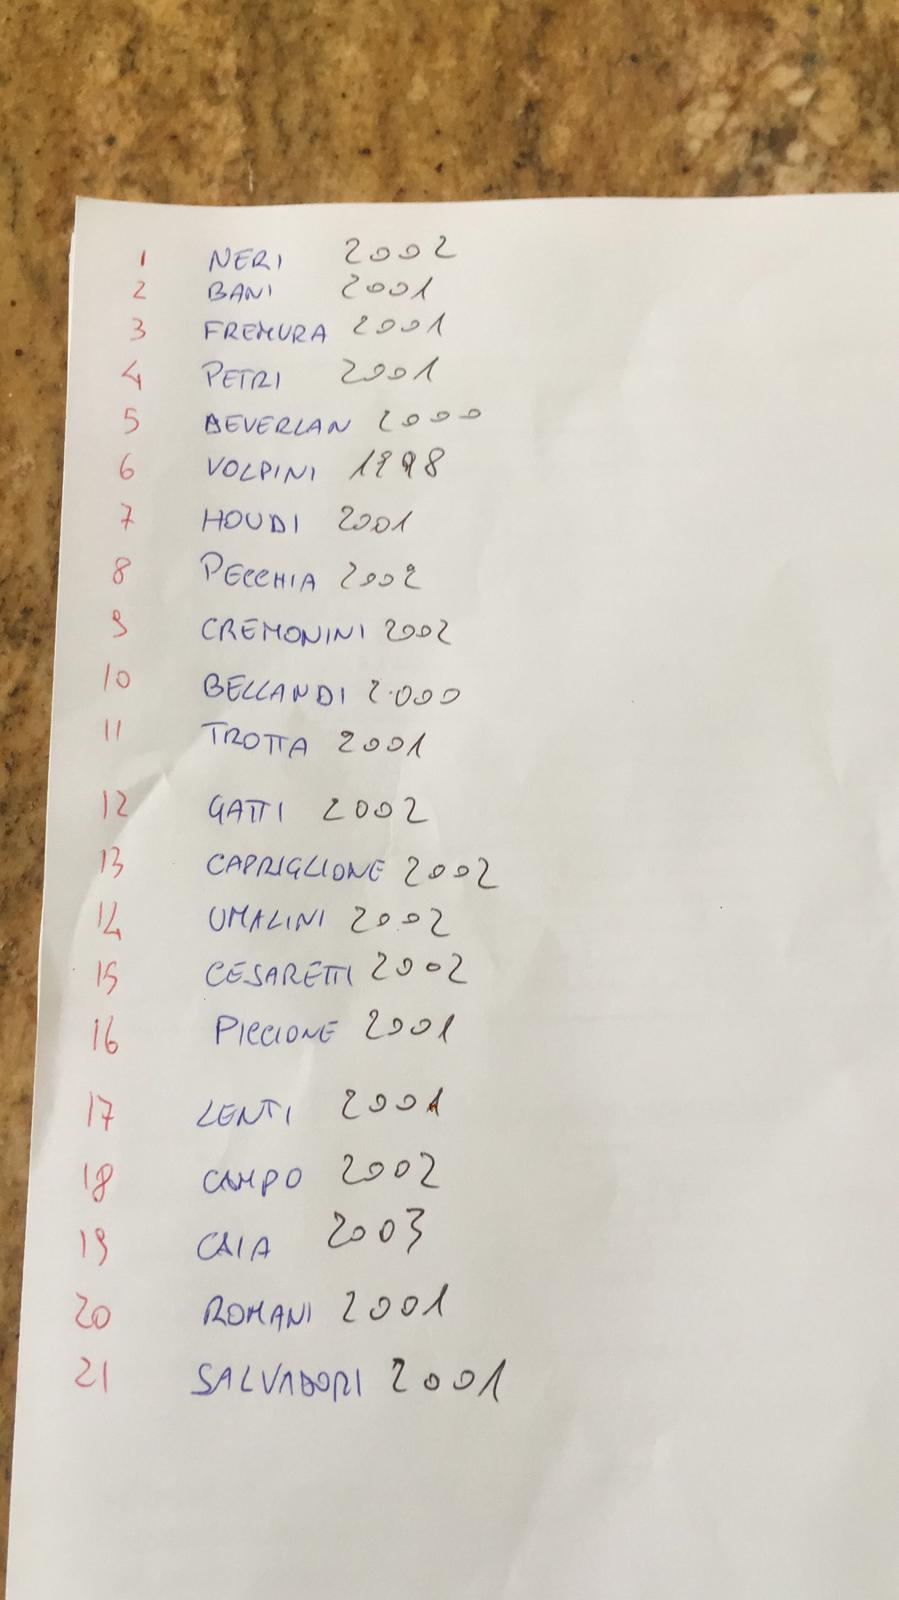 1 NERI 2002
2 BANI 2001
3 FREMURA 2001
4 PETRI 2001
5 BEVERLAN 2000
6 VOLPINI 1998
7 HOUDI 2001
8 PECCHIA 2002
9 CREMONINI 2002
10 BELLANDI 2000
11 TROTTA 2001
12 GATTI 2002
13 CAPRIGLIONE 2002
14 UMALINI 2002
15 CESARETTI 2002
16 PICCIONE 2001
17 LENTI 2001
18 CAMPO 2002
19 CAIA 2003
20 ROMANI 2001
21 SALVADORI 2001